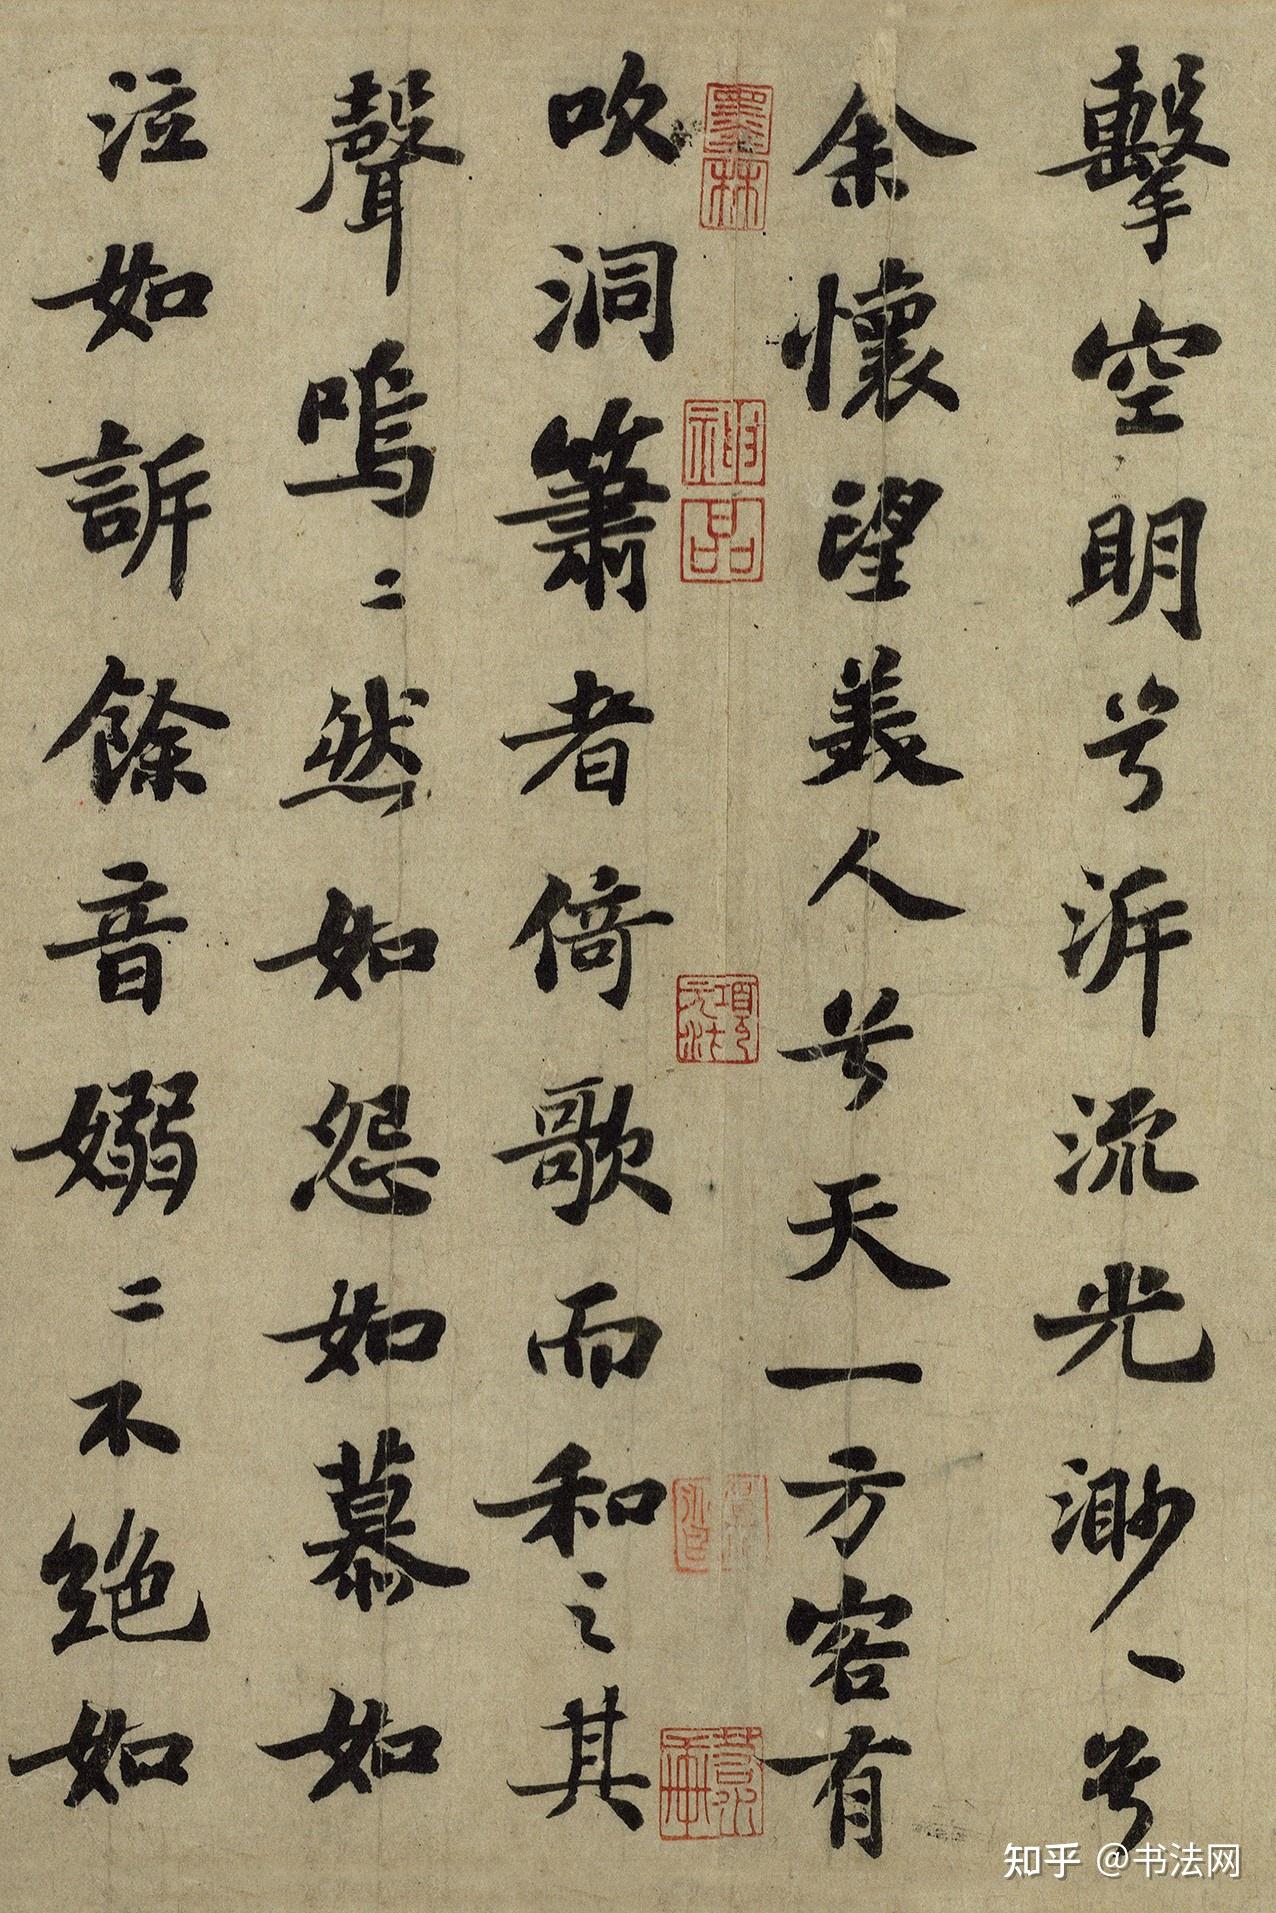 擊空明兮泝流光渺〻兮
余懷望美人兮天一方客有
吹洞簫者倚歌而和之其
聲嗚〻然如怨如慕如
泣如訴餘音嫋〻不絕如
墨林
神品
知乎 @书法网